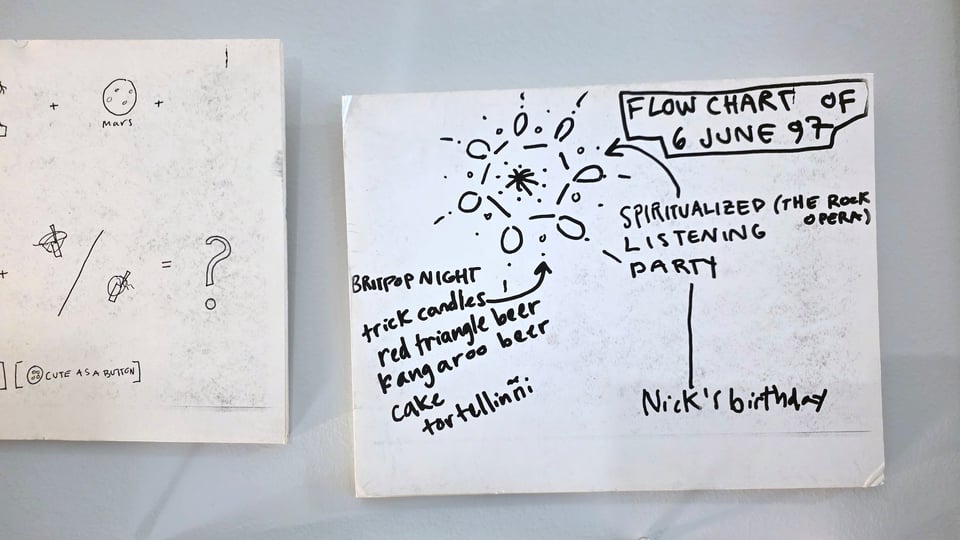 +
+
mars
+
/
=
?
[CUTE AS A BUTTON]
FLOW CHART OF
6 JUNE 97
SPIRITUALIZED (THE ROCK
OPERA)
LISTENING
PARTY
BRITPOP NIGHT
trick candles
red triangle beer
kangaroo beer
cake
tortellinñi
Nick's birthday